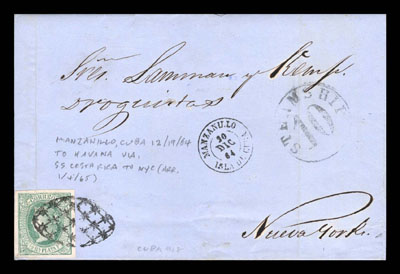 Sres. Lanman y Kemp.
Droguistas
STEAMSHIP
10
MANZANILLO
20
DIC
64
ISLA DE CUBA
MANZANILLO, CUBA 12/19/64
TO HAVANA VIA.
SS COSTA RICA TO NYC (ARR.
1/4/65)
Nueva York.